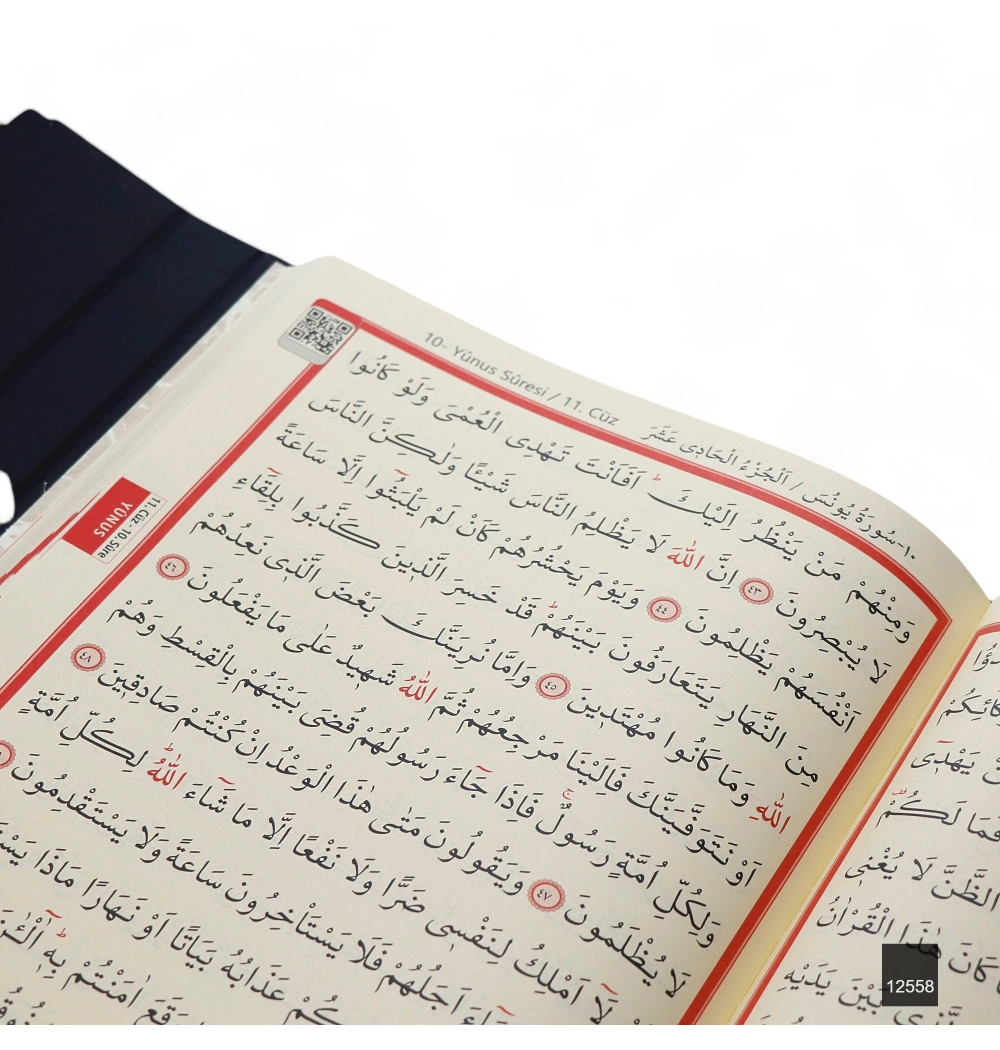 10- Yûnus Sûresi / 11. Cüz
١٠-سُورَةُ يُونُسَ / اَلْجُزْءُ الْحَادِى عَشَرَ
11. Cüz - 10. Sûre
YÛNUS
وَمِنْهُمْ مَنْ يَنْظُرُ اِلَيْكَۜ اَفَاَنْتَ تَهْدِى الْعُمْىَ وَلَوْ كَانُوا
لَا يُبْصِرُونَ ﴿٤٣﴾ اِنَّ اللّٰهَ لَا يَظْلِمُ النَّاسَ شَيْـًٔا وَلٰكِنَّ النَّاسَ
اَنْفُسَهُمْ يَظْلِمُونَ ﴿٤٤﴾ وَيَوْمَ يَحْشُرُهُمْ كَاَنْ لَمْ يَلْبَثُٓوا اِلَّا سَاعَةً
مِنَ النَّهَارِ يَتَعَارَفُونَ بَيْنَهُمْۜ قَدْ خَسِرَ الَّذ۪ينَ كَذَّبُوا بِلِقَٓاءِ
اللّٰهِ وَمَا كَانُوا مُهْتَد۪ينَ ﴿٤٥﴾ وَاِمَّا نُرِيَنَّكَ بَعْضَ الَّذ۪ى نَعِدُهُمْ
اَوْ نَتَوَفَّيَنَّكَ فَاِلَيْنَا مَرْجِعُهُمْ ثُمَّ اللّٰهُ شَه۪يدٌ عَلٰى مَا يَفْعَلُونَ ﴿٤٦﴾
وَلِكُلِّ اُمَّةٍ رَسُولٌۚ فَاِذَا جَٓاءَ رَسُولُهُمْ قُضِىَ بَيْنَهُمْ بِالْقِسْطِ وَهُمْ
لَا يُظْلَمُونَ ﴿٤٧﴾ وَيَقُولُونَ مَتٰى هٰذَا الْوَعْدُ اِنْ كُنْتُمْ صَادِق۪ينَ ﴿٤٨﴾
لَٓا اَمْلِكُ لِنَفْس۪ى ضَرًّا وَلَا نَفْعًا اِلَّا مَا شَٓاءَ اللّٰهُۜ لِكُلِّ اُمَّةٍ
اَجَلُهُمْ فَلَا يَسْتَأْخِرُونَ سَاعَةً وَلَا يَسْتَقْدِمُونَ
عَذَابُهُ بَيَاتًا اَوْ نَهَارًا مَاذَا
اٰمَنْتُمْ بِه۪ۜ
يَهْدّ۪ٓى
فَمَا لَكُمْ
الظَّنَّ لَا يُغْن۪ى
كَانَ هٰذَا الْقُرْاٰنُ
بَيْنَ يَدَيْهِ
12558